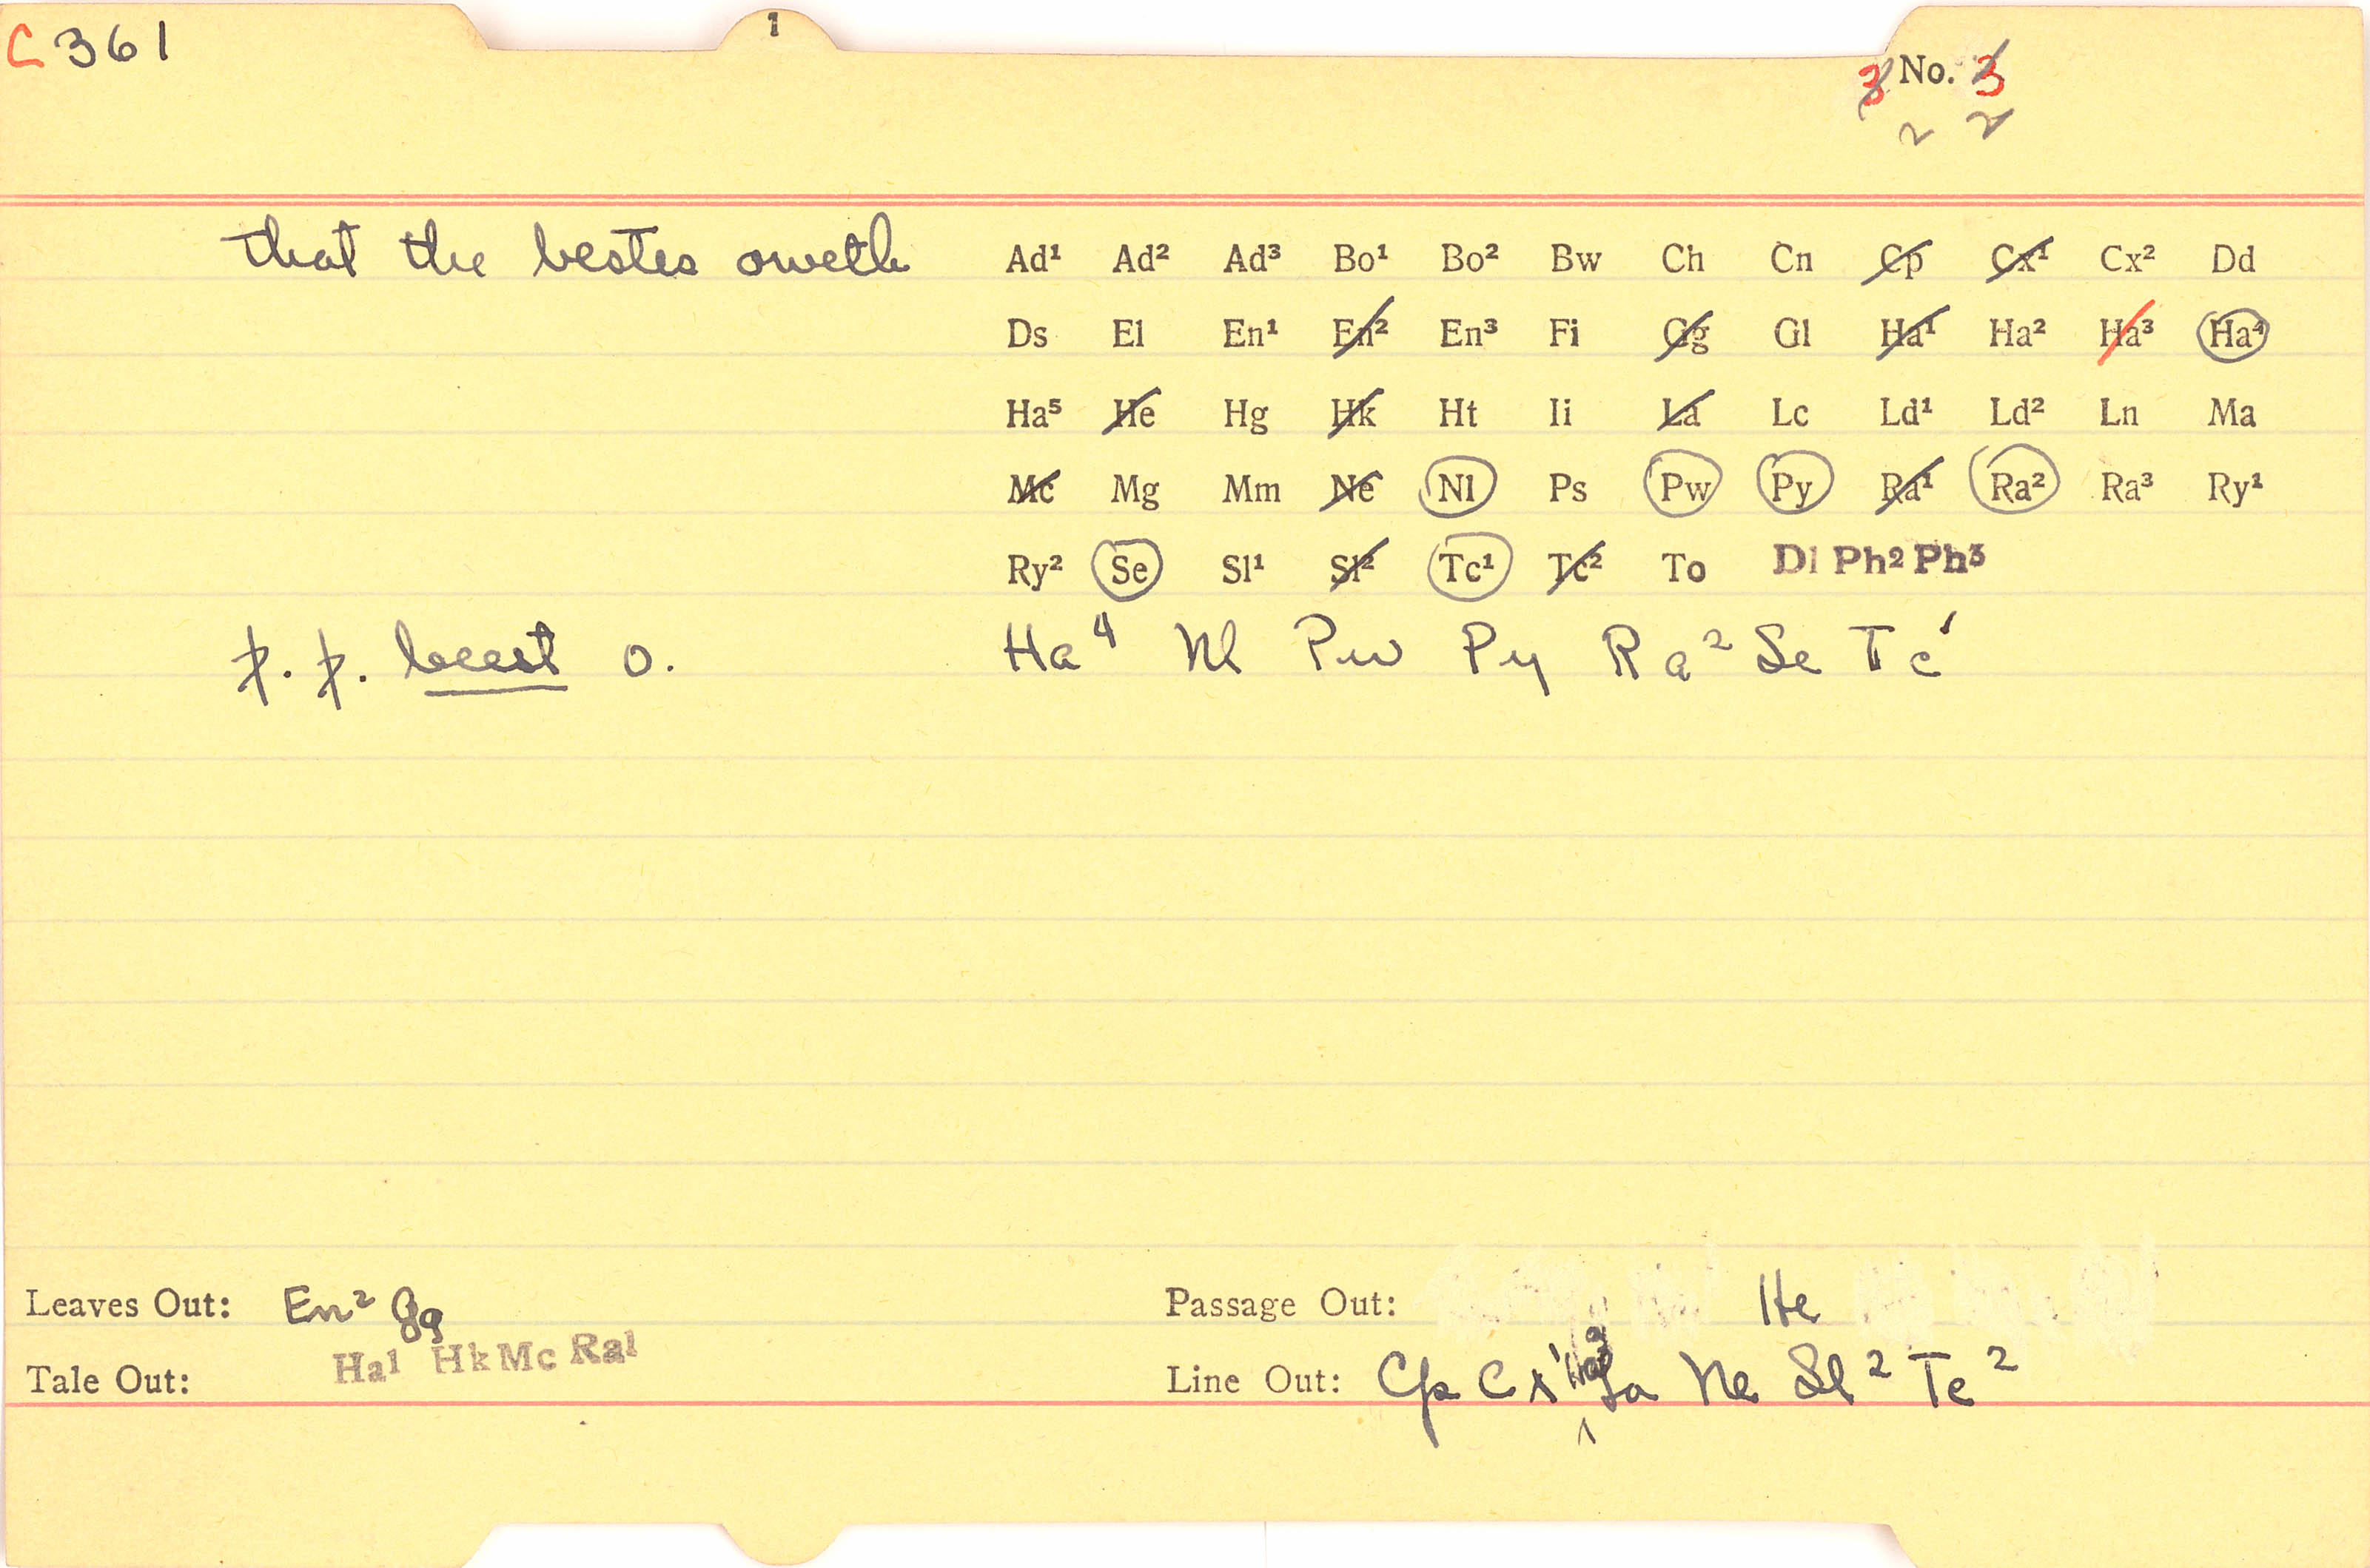 C 361
1
3 No. 3
2 2
that the bestes oweth
Ad¹ Ad² Ad³ Bo¹ Bo² Bw Ch Cn Cp Cx¹ Cx² Dd
Ds El En¹ En² En³ Fi Gg Gl Ha¹ Ha² Ha³ Ha⁴
Ha⁵ He Hg Hk Ht Ii La Lc Ld¹ Ld² Ln Ma
Mc Mg Mm Ne Nl Ps Pw Py Ra¹ Ra² Ra³ Ry¹
Ry² Se Sl¹ Sl² Tc¹ Tc² To Dl Ph2 Ph3
þ. þ. beest o. Ha⁴ Nl Pw Py Ra² Se Tc¹
Leaves Out: En² Gg
Ha1 Hk Mc Ra1
Tale Out:
Passage Out: He
Line Out: Cp Cx¹ Ha³ La Ne Sl² Tc²